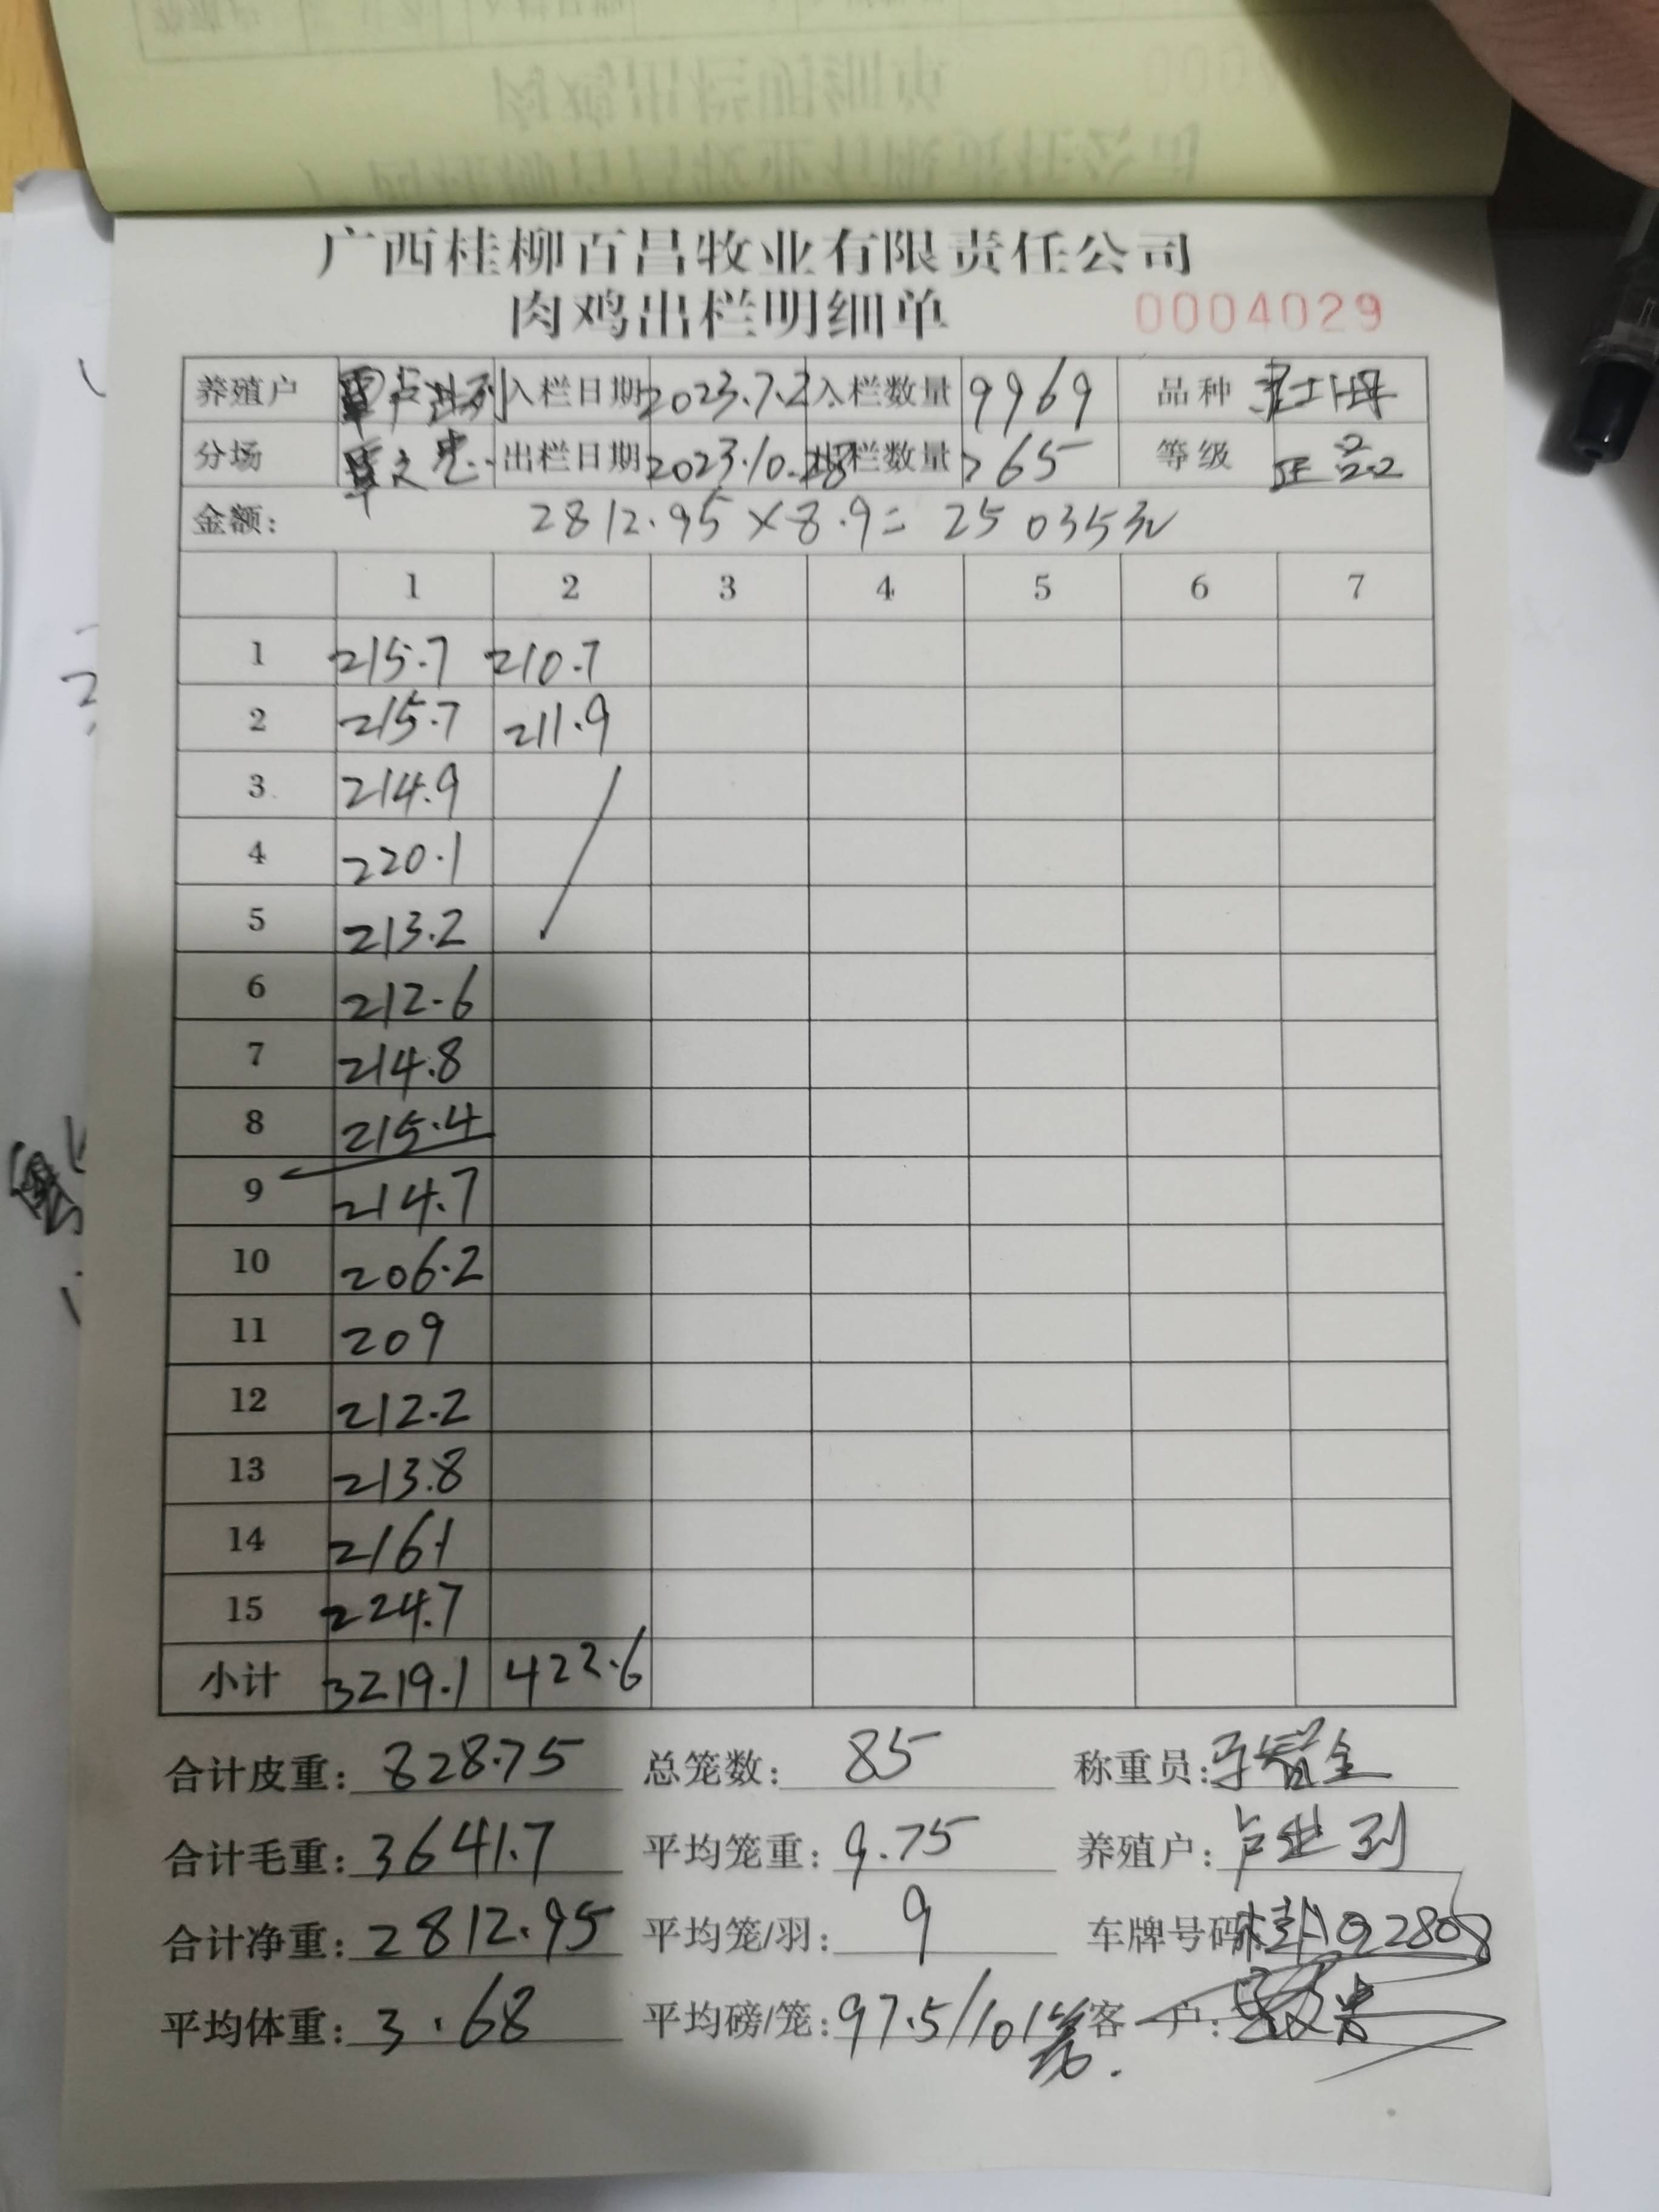 广西桂柳百昌牧业有限责任公司
肉鸡出栏明细单 0004029
养殖户 入栏日期 2023.7.2 入栏数量 9969 品种 土母
分场 覃文忠 出栏日期 2023.10.28 出栏数量 765 等级 正品
金额: 2812.95×8.9=25035元
1 2 3 4 5 6 7
1 215.7 210.7
2 215.7 211.9
3 214.9
4 220.1
5 213.2
6 212.6
7 214.8
8 215.4
9 214.7
10 206.2
11 209
12 212.2
13 213.8
14 216.1
15 224.7
小计 3219.1 422.6
合计皮重: 828.75 总笼数: 85 称重员:
合计毛重: 3641.7 平均笼重: 9.75 养殖户:
合计净重: 2812.95 平均笼/羽: 9 车牌号码: 桂AQ2808
平均体重: 3.68 平均磅/笼: 97.5/10笼 客户: